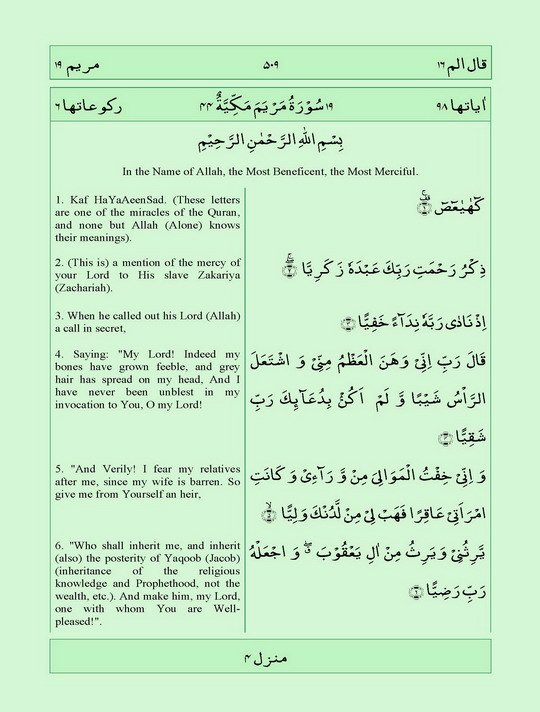 قال الم ١٦ ٥٠٩ مريم ١٩
اٰياتها ٩٨ ١٩ سُوْرَةُ مَرْيَمَ مَكِّيَّةٌ ٤٤ ركوعاتها ٦
بِسْمِ اللّٰهِ الرَّحْمٰنِ الرَّحِيْمِ
In the Name of Allah, the Most Beneficent, the Most Merciful.
كٓهٰيٰعٓصٓ ۚ ﴿۱﴾
1. Kaf HaYaAeenSad. (These letters
are one of the miracles of the Quran,
and none but Allah (Alone) knows
their meanings).
ذِكْرُ رَحْمَتِ رَبِّكَ عَبْدَهٗ زَكَرِيَّا ۖۚ ﴿۲﴾
2. (This is) a mention of the mercy of
your Lord to His slave Zakariya
(Zachariah).
اِذْ نَادٰى رَبَّهٗ نِدَآءً خَفِيًّا ﴿۳﴾
3. When he called out his Lord (Allah)
a call in secret,
قَالَ رَبِّ اِنِّىْ وَهَنَ الْعَظْمُ مِنِّىْ وَ اشْتَعَلَ
الرَّاْسُ شَيْبًا وَّ لَمْ اَكُنْۢ بِدُعَآئِكَ رَبِّ
شَقِيًّا ﴿۴﴾
4. Saying: "My Lord! Indeed my
bones have grown feeble, and grey
hair has spread on my head, And I
have never been unblest in my
invocation to You, O my Lord!
وَ اِنِّىْ خِفْتُ الْمَوَالِىَ مِنْ وَّرَآءِىْ وَ كَانَتِ
امْرَاَتِىْ عَاقِرًا فَهَبْ لِىْ مِنْ لَّدُنْكَ وَلِيًّا ۙ ﴿۵﴾
5. "And Verily! I fear my relatives
after me, since my wife is barren. So
give me from Yourself an heir,
يَّرِثُنِىْ وَ يَرِثُ مِنْ اٰلِ يَعْقُوْبَ ۖ وَ اجْعَلْهُ
رَبِّ رَضِيًّا ﴿۶﴾
6. "Who shall inherit me, and inherit
(also) the posterity of Yaqoob (Jacob)
(inheritance of the religious
knowledge and Prophethood, not the
wealth, etc.). And make him, my Lord,
one with whom You are Well-
pleased!".
منزل ٤